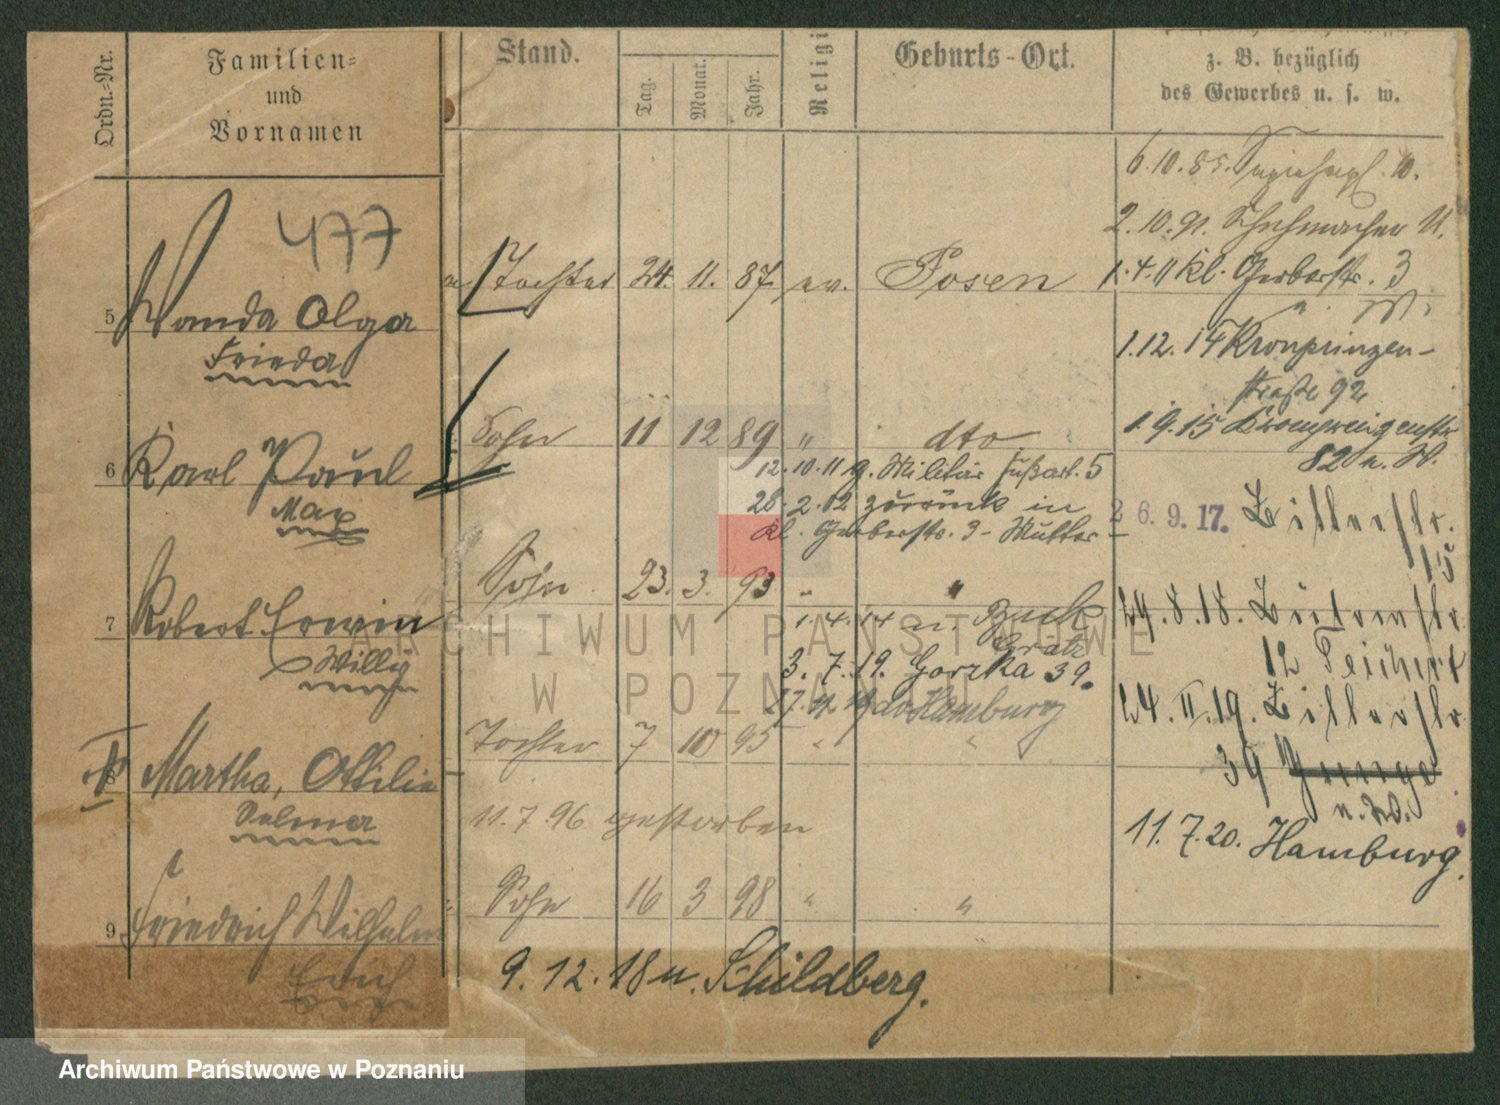 Ordn.-Nr.
Familien-
und
Vornamen
Stand.
Tag.
Monat.
Jahr.
Religi
Geburts-Ort.
z. B. bezüglich
des Gewerbes u. s. w.
477
6.10.85.
2.10.91. Schuhmacher U.
5 Wanda Olga
Frieda
Tochter 24. 11. 87 ev. Posen
1.4.11 kl. Gerberstr. 3
1.12.14 Kronprinzen-
straße 92
6 Karl Paul
Max
Sohn 11 12 89 " dto
1.9.15 Kronprinzenstr
82 n. H.
12.10.11 z. Militär Fußart. 5
28.2.12 zurück in
kl. Gerberstr. 3 - Mutter -
26.9.17.
15
7 Robert Erwin
Willy
Sohn 23. 3. 93 " "
1.4.14 n Buck
Grätz
3.7.19. Gorzka 39.
Hamburg
24.8.18.
12 Teichert
24.II.19.
39
8 Martha, Ottilie
Selma
Tochter 7 10 95 " "
11.7.96 gestorben
11.7.20. Hamburg.
9 Friedrich Wilhelm
Erich
Sohn 16 3 98 " "
9.12.18 n. Schildberg.
ARCHIWUM PAŃSTWOWE
W POZNANIU
Archiwum Państwowe w Poznaniu